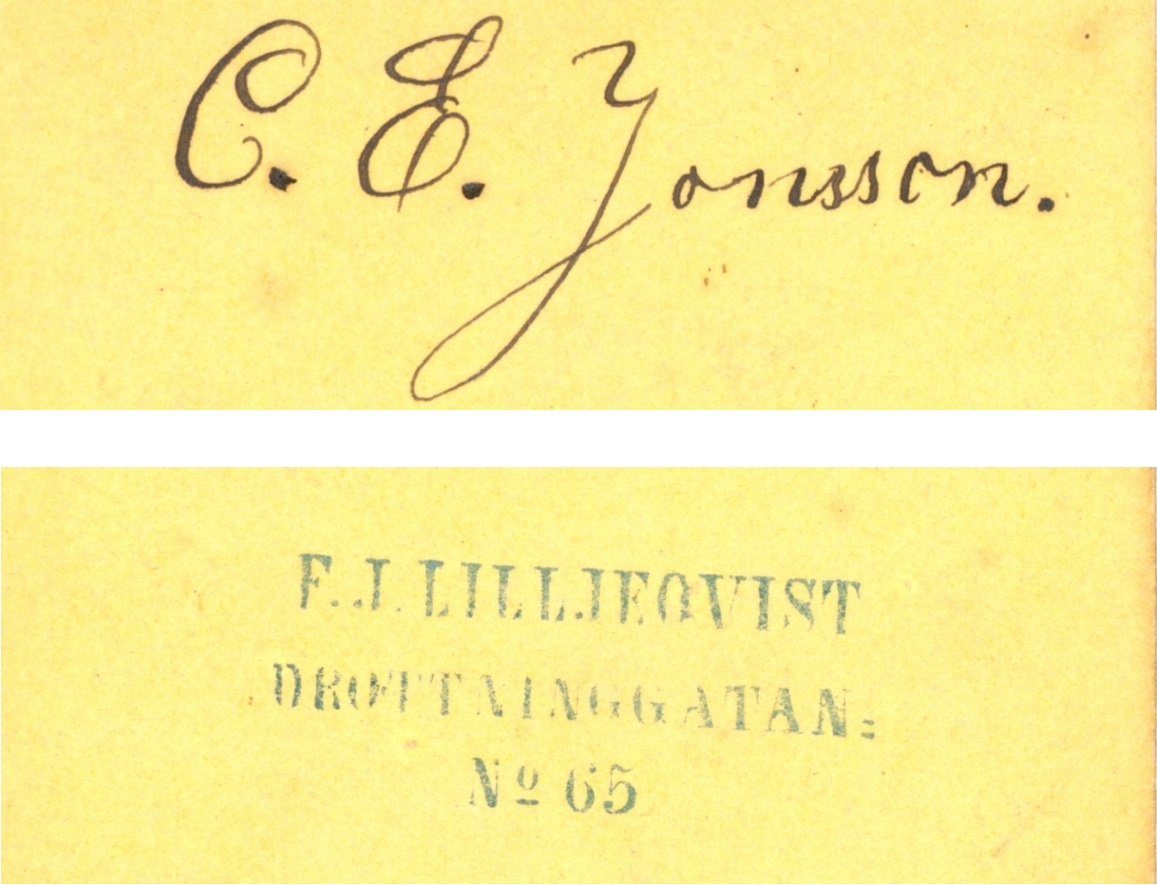 C. E. Jonsson.
F. J. LILLJEQVIST
DROTTNINGGATAN:
Nº 65